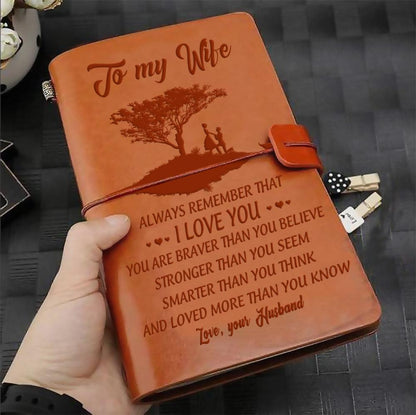 To my Wife
ALWAYS REMEMBER THAT
I LOVE YOU
YOU ARE BRAVER THAN YOU BELIEVE
STRONGER THAN YOU SEEM
SMARTER THAN YOU THINK
AND LOVED MORE THAN YOU KNOW
Love, your Husband